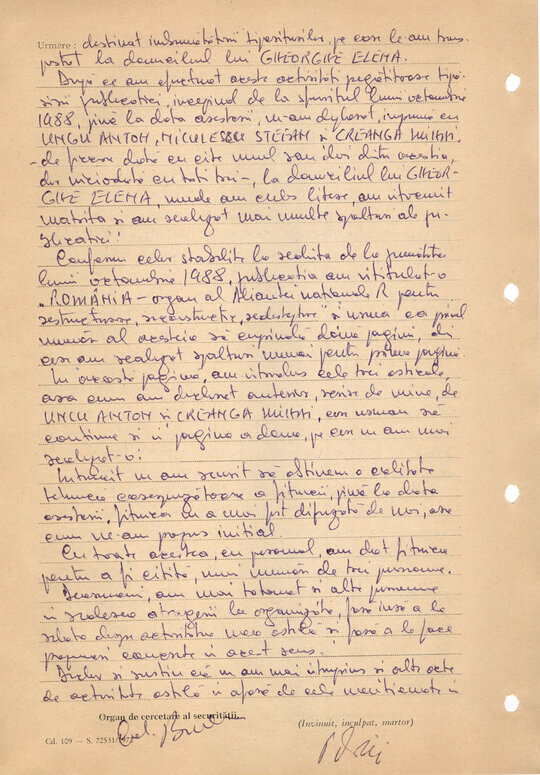 Urmare: destinat îmbunătățirii tipăriturilor, pe care le-am trans-
portat la domiciliul lui GHEORGHE ELENA.
După ce am efectuat aceste activități pregătitoare tipă-
ririi publicației, începînd de la sfîrșitul lunii octombrie
1988, pînă la data arestării, m-am deplasat, împreună cu
UNCU ANTON, NICULESCU STEFAN și CREANGA MIHAI,
- de fiecare dată cu cîte unul sau doi dintre aceștia,
dar niciodată cu toți trei -, la domiciliul lui GHEOR-
GHE ELENA, unde am cules litere, am întocmit
matrița și am realizat mai multe șpalturi ale pu-
blicației.
Conform celor stabilite la ședința de la jumătatea
lunii octombrie 1988, publicația am intitulat-o
"ROMÂNIA - organ al Alianței naționale R pentru
restructurare, reconstrucție, redeșteptare" și urma ca primul
număr al acesteia să cuprindă două pagini, din
care am realizat șpalturi numai pentru prima pagină.
În această pagină, am introdus cele trei articole,
așa cum am declarat anterior, scrise de mine, de
UNCU ANTON și CREANGA MIHAI, care urmau să
continue și în pagina a doua, pe care n-am mai
realizat-o.
Întrucît n-am reușit să obținem o calitate
tehnică corespunzătoare a fițuicii, pînă la data
arestării, fițuica n-a mai fost difuzată de noi, așa
cum ne-am propus inițial.
Cu toate acestea, eu personal, am dat fițuica
pentru a fi citită, unui număr de trei persoane.
Deasemeni, am mai tatonat și alte persoane
în vederea atragerii la organizație, fără însă a le
relata despre activitatea mea ostilă și fără a le face
propuneri concrete în acest sens.
Declar și susțin că n-am mai întreprins și alte acte
de activitate ostilă în afară de cele menționate în
Organ de cercetare al securității,
(Învinuit, inculpat, martor)
Cd. 109 — S. 72531/